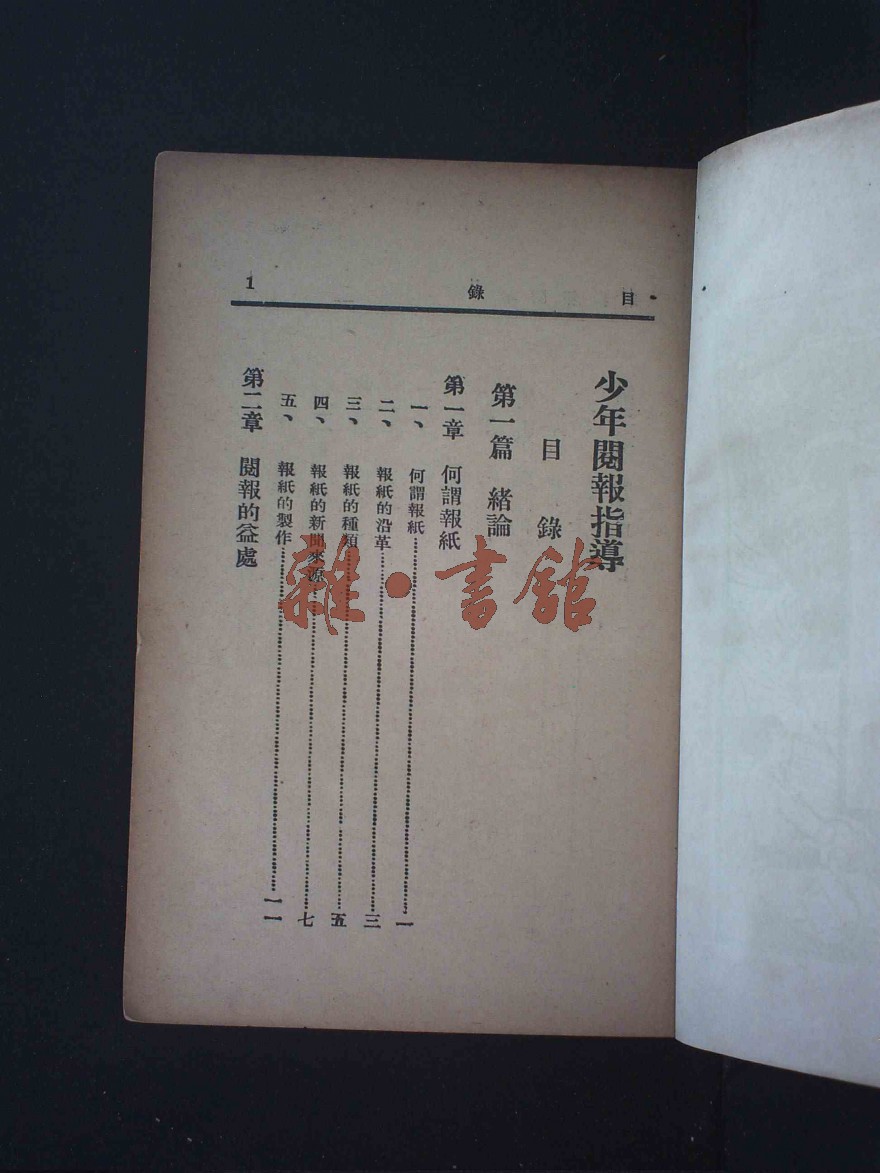 目錄 1
少年閱報指導
目錄
第一篇 緒論
第一章 何謂報紙
一、 何謂報紙……一
二、 報紙的沿革……三
三、 報紙的種類……五
四、 報紙的新聞來源……七
五、 報紙的製作……一一
第二章 閱報的益處
雜·書館